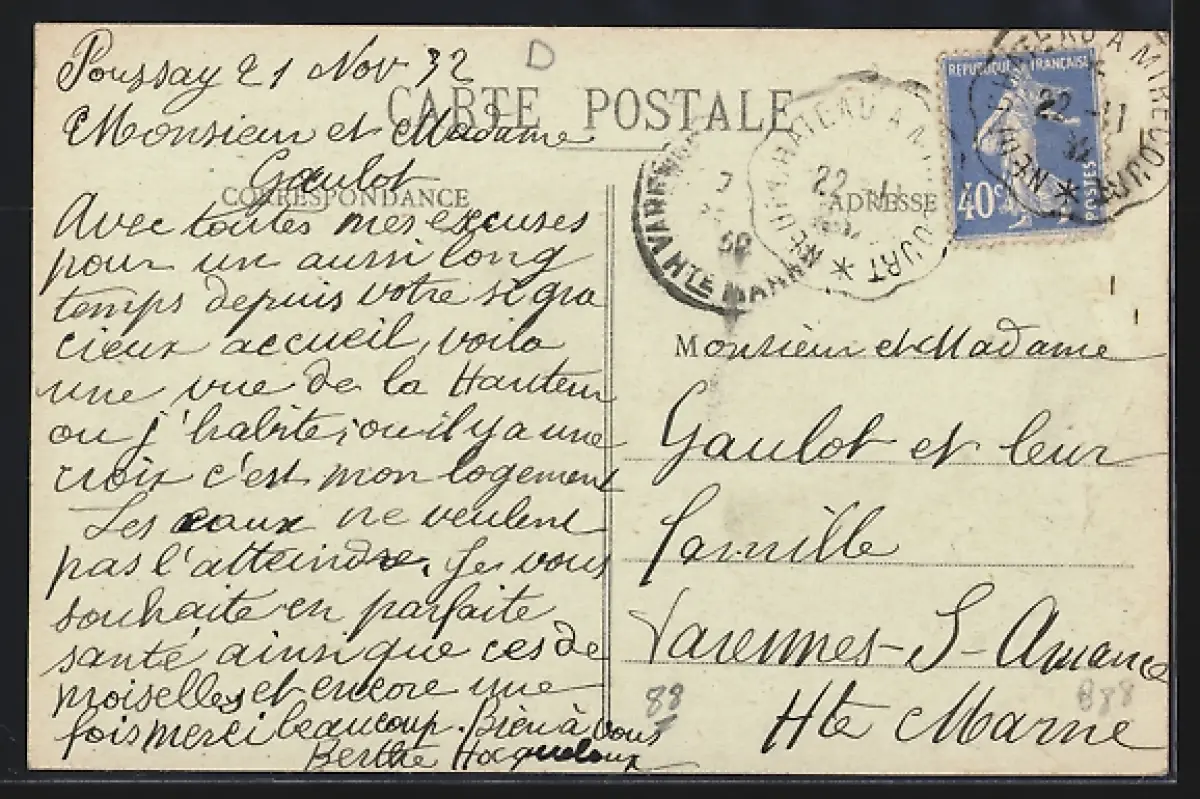 Poussay 21 Nov 32
D
CARTE POSTALE
Monsieur et Madame
Gaulot
CORRESPONDANCE
Avec toutes mes excuses
pour un aussi long
temps depuis votre si gra
cieux accueil, voila
une vue de la Hauteur
ou j'habite; ou il y a une
croix c'est mon logement
Les eaux ne veulent
pas l'atteindre. Je vous
souhaite en parfaite
santé ainsi que ces de
moiselles et encore une
fois merci beaucoup. Bien à vous
Berthe
ADRESSE
REPUBLIQUE FRANÇAISE
40c
POSTES
NEUFCHATEAU A MIRECOURT
22 -11
32
NEUFCHATEAU A MIRECOURT
22 -11
VARENNES
HTE MARNE
Monsieur et Madame
Gaulot et leur
famille
Varennes-S-Amance
Hte Marne
88
888